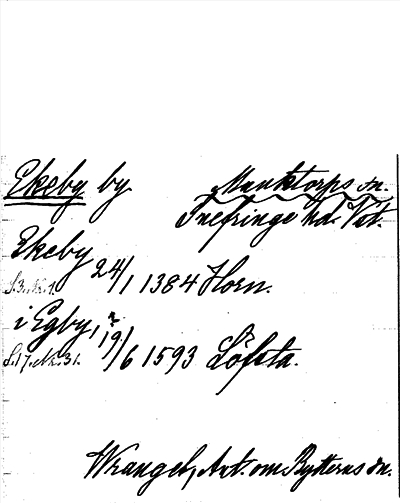 Ekeby by Munktorps sn.
Snefringe hd. Vst.
Ekeby 24/1 1384 Horn.
S. 3. N. 1.
i Egby, 19/6 1593 Löfsta.
S. 17. N. 31.
Wrangel, Ant. om Rytterns sn.